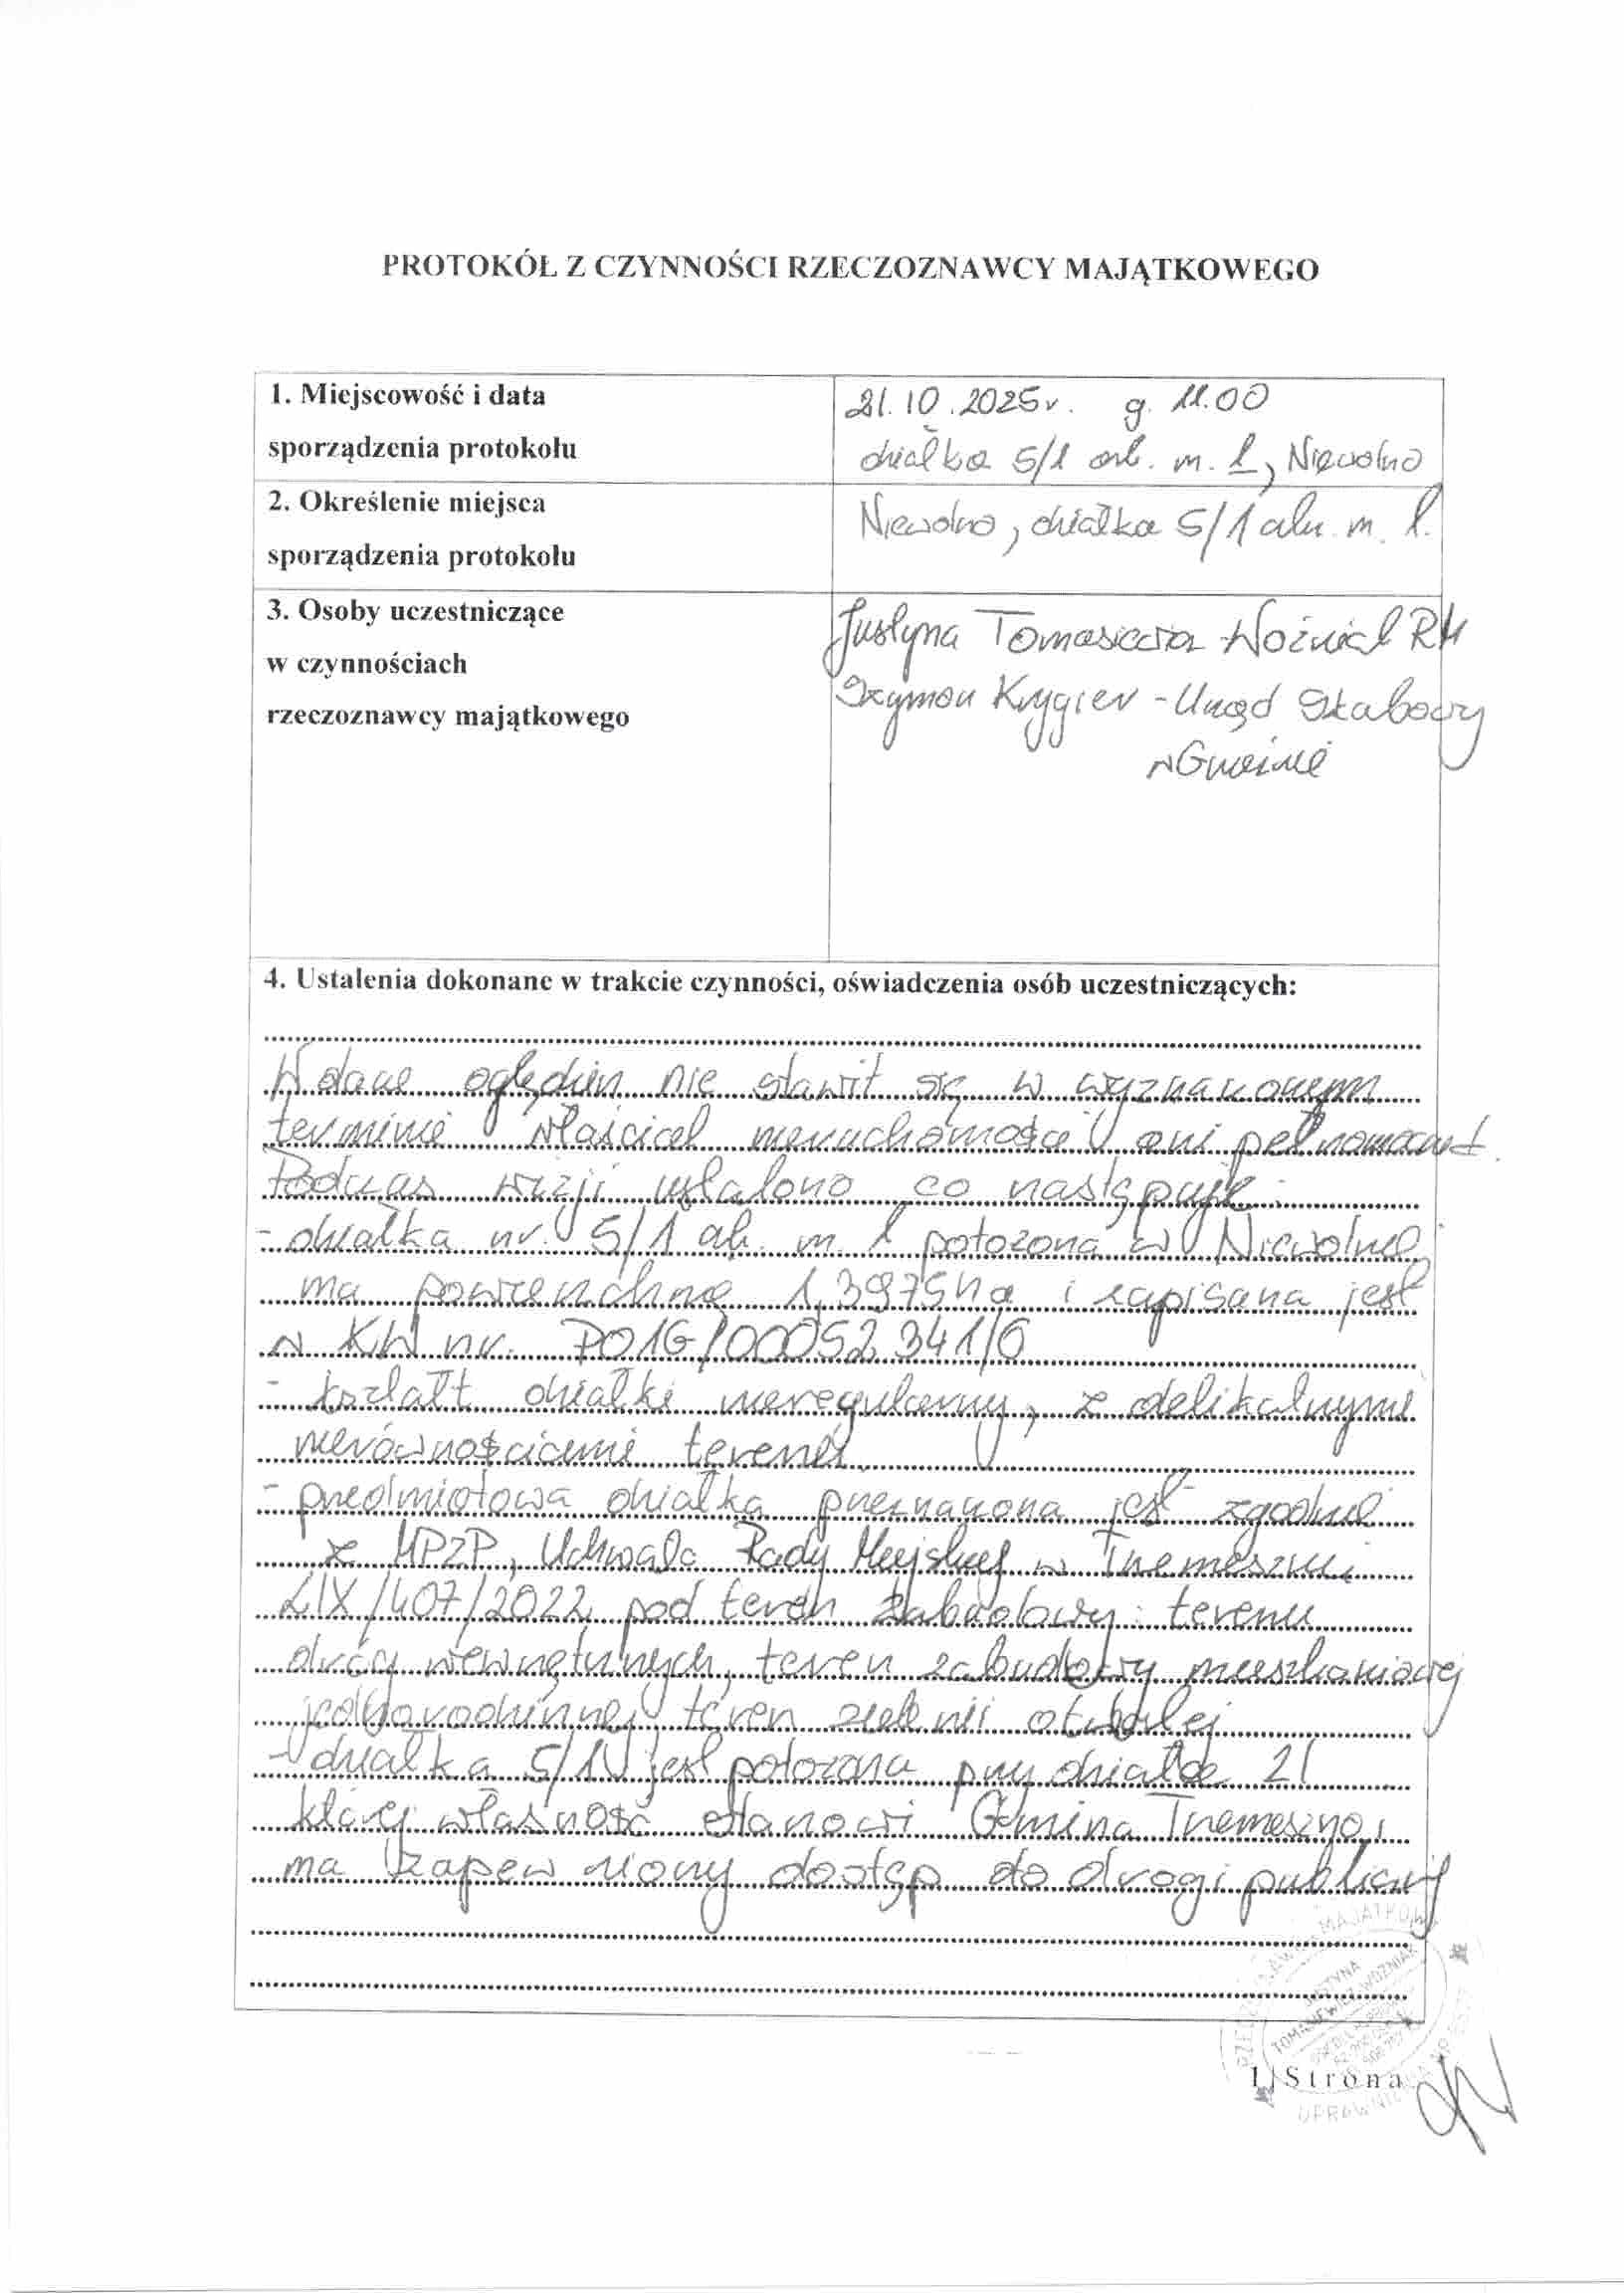 PROTOKÓŁ Z CZYNNOŚCI RZECZOZNAWCY MAJĄTKOWEGO
1. Miejscowość i data
sporządzenia protokołu
21.10.2025r. g. 11.00
działka 5/1 ark. m. 1, Niewolno
2. Określenie miejsca
sporządzenia protokołu
Niewolno, działka 5/1 ark. m. 1.
3. Osoby uczestniczące
w czynnościach
rzeczoznawcy majątkowego
Justyna Tomasiewicz-Woźniak RM
Szymon Krygier - Urząd Skarbowy
w Gnieźnie
4. Ustalenia dokonane w trakcie czynności, oświadczenia osób uczestniczących:
W dane oględzin nie stawił się w wyznaczonym
terminie właściciel nieruchomości ani pełnomocnik.
Podczas wizji ustalono co następuje:
- działka nr. 5/1 ark. m. 1 położona w Niewolnie,
ma powierzchnię 1,3975ha i zapisana jest
w KW nr. PO1G/00052341/6
- kształt działki nieregularny, z delikatnymi
nierównościami terenu.
- przedmiotowa działka przeznaczona jest zgodnie
z MPZP, Uchwała Rady Miejskiej w Trzemesznie
LIX/407/2022 pod teren zabudowy: terenu
dróg wewnętrznych, teren zabudowy mieszkaniowej
jednorodzinnej, teren zieleni otwartej
- działka 5/1 jest położona przy działce 21
której własność stanowi Gmina Trzemeszno,
ma zapewniony dostęp do drogi publicznej
JUSTYNA
1 | Strona